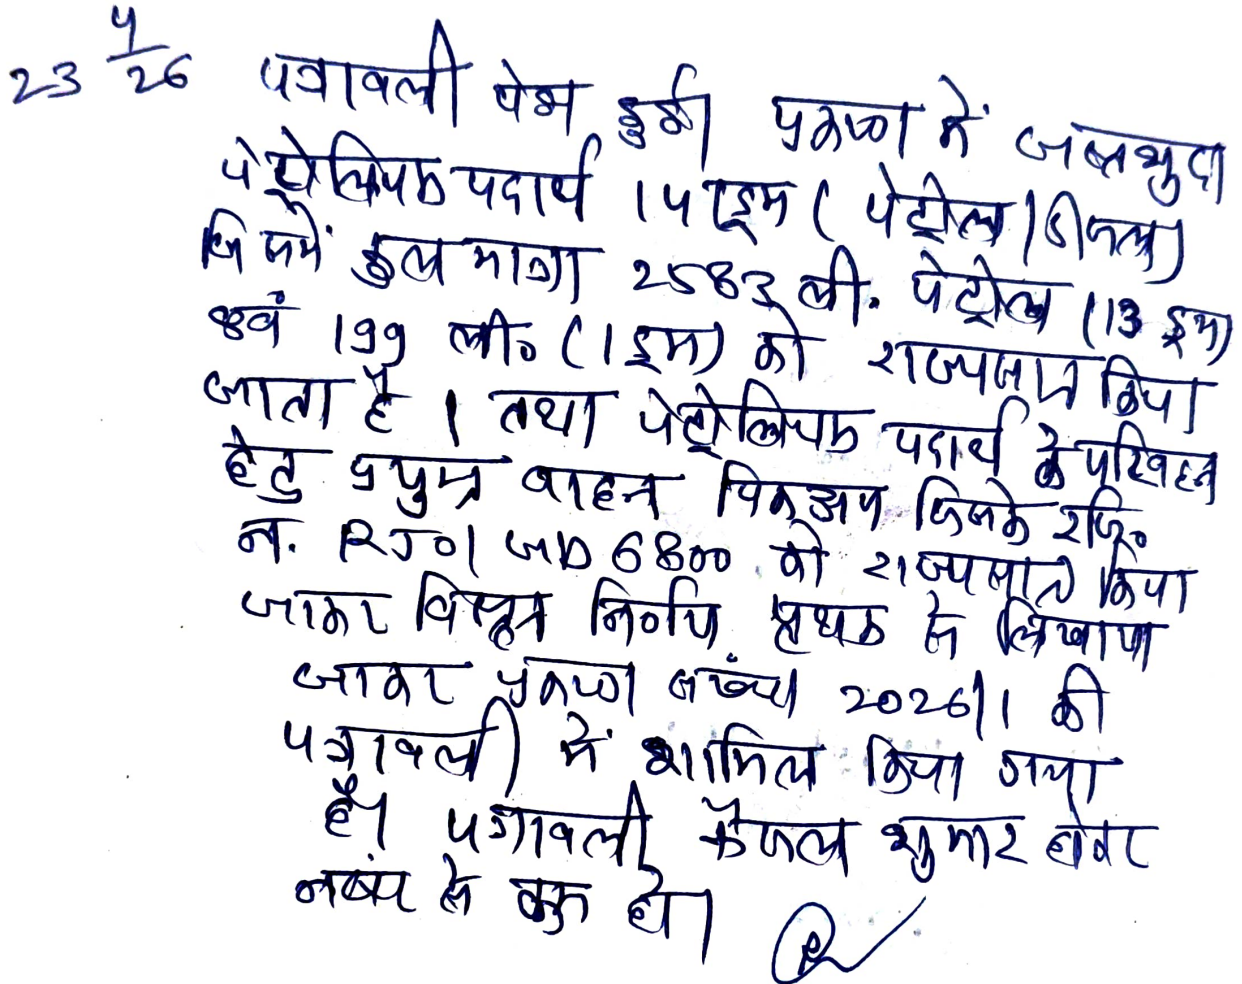 23 4/26 पत्रावली पेश हुई। प्रकरण में जब्तशुदा
पेट्रोलियम पदार्थ 14 ड्रम ( पेट्रोल / डीजल)
जिसमें कुल मात्रा 2583 ली. पेट्रोल (13 ड्रम)
एवं 199 ली० (1 ड्रम) को राज्यसात किया
जाता है । तथा पेट्रोलियम पदार्थ के परिवहन
हेतु प्रयुक्त वाहन पिकअप जिसके रजि०
न. RJ01 6800 को राज्यसात किया
जाकर विस्तृत निर्णय पृथक से लिखाया
जाकर प्रकरण संख्या 2026/1 की
पत्रावली में शामिल किया गया
है। पत्रावली फैसल शुमार होकर
नम्बर से कम हो।